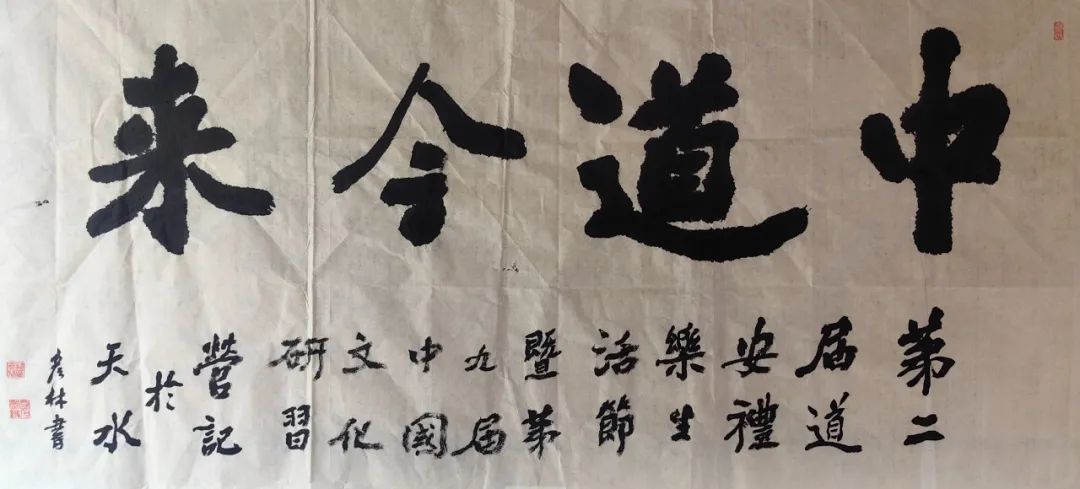 中道今来
第二
届道
安禮
樂生
活節
暨第
九届
中國
文化
研習
營記
於
天水
彦林書